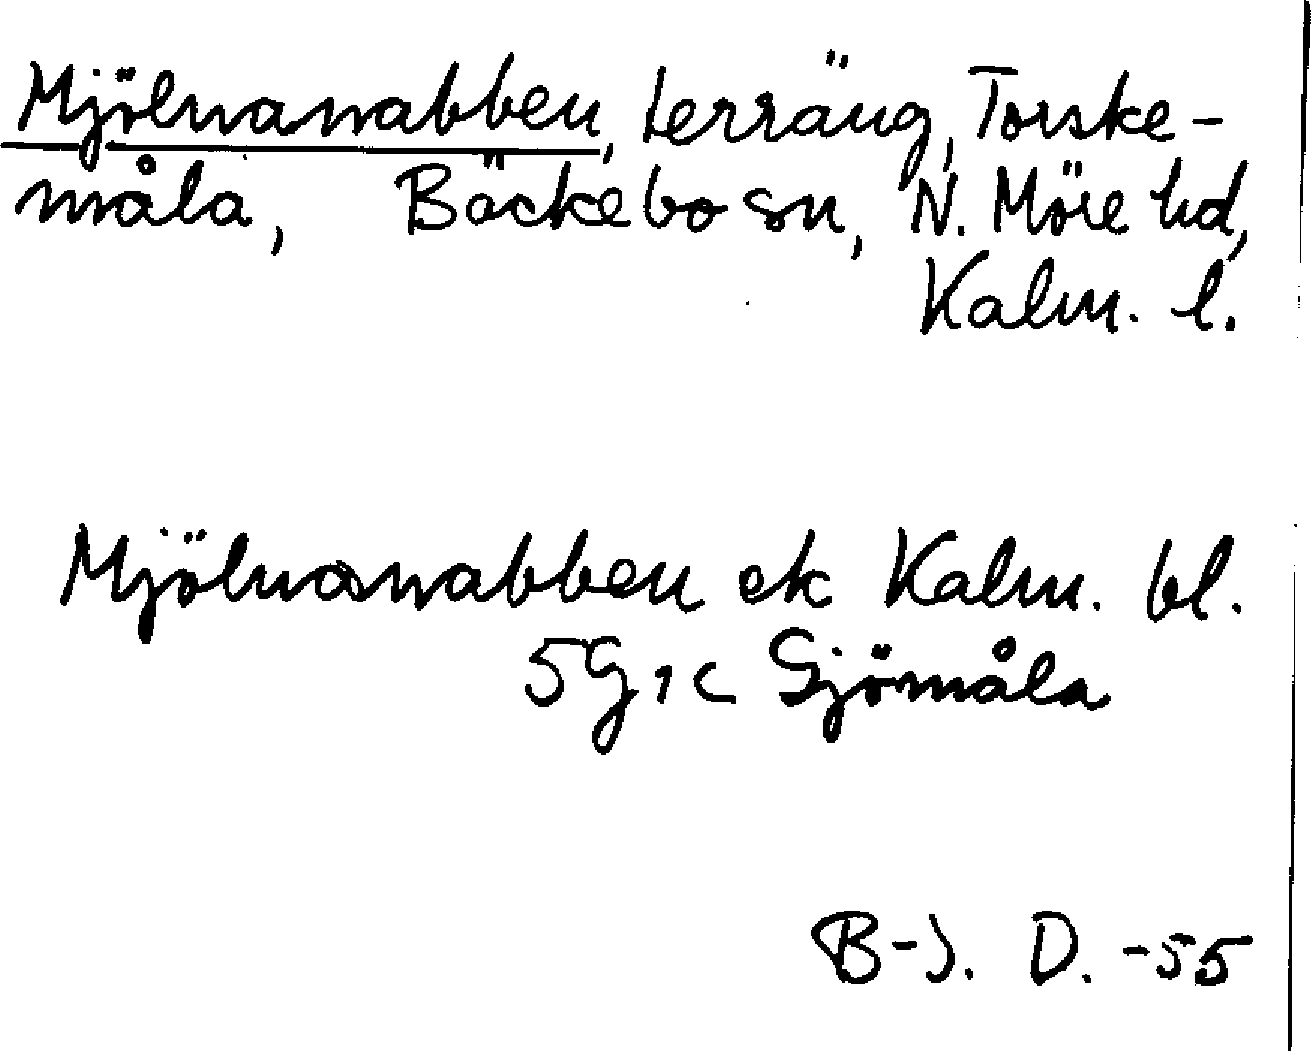 Mjölnanabben, terräng, Torske-
måla, Bäckebo sn, N. Möre hd,
Kalm. l.
Mjölnanabben ek Kalm. bl.
5G1c Sjömåla
B-J. D. -55